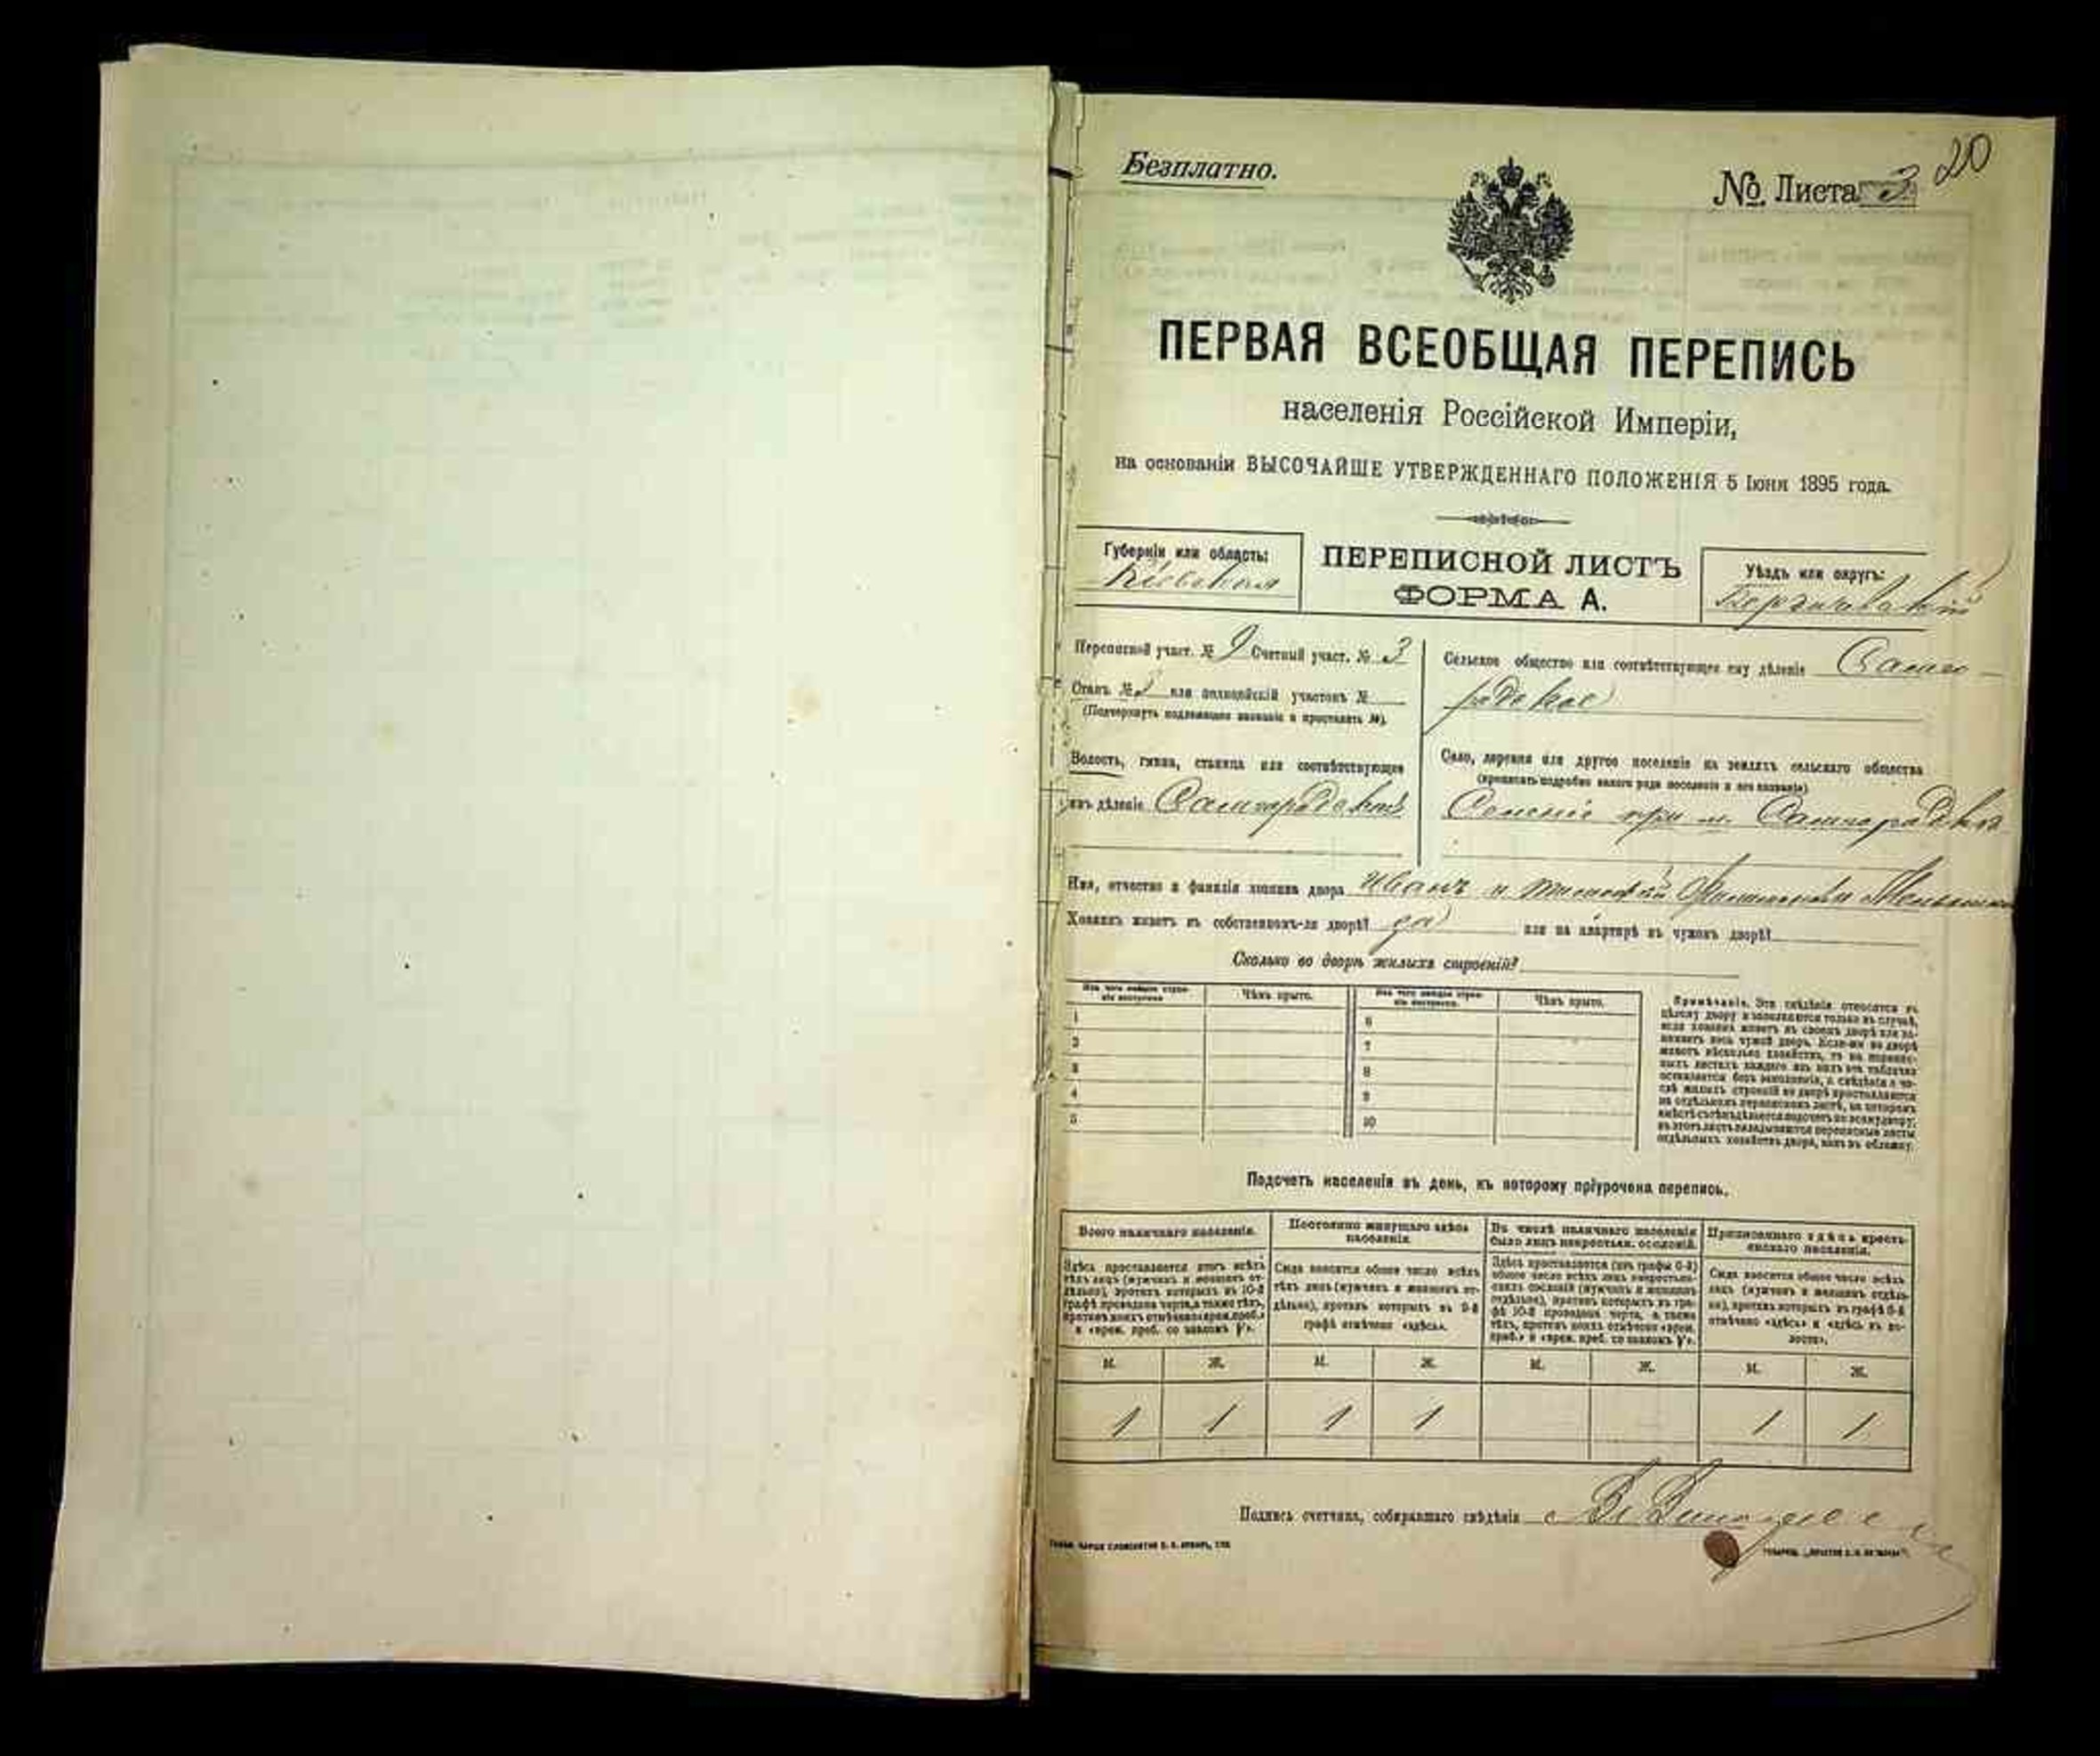 Безплатно.
№ Листа 3
20
ПЕРВАЯ ВСЕОБЩАЯ ПЕРЕПИСЬ
населенія Россійской Имперіи,
на основаніи ВЫСОЧАЙШЕ УТВЕРЖДЕННАГО ПОЛОЖЕНІЯ 5 Іюня 1895 года.
Губернія или область:
Кіевская
ПЕРЕПИСНОЙ ЛИСТЪ
ФОРМА А.
Уѣздъ или округъ:
Бердичевскій
Переписной участ. № 9 Счетный участ. № 3
Станъ № или полицейскій участокъ №
(Подчеркнуть подлежащее названіе и проставить №).
Волость, гмина, станица или соотвѣтствующее
имъ дѣленіе Самгородская
Сельское общество или соотвѣтствующее ему дѣленіе Самго-
родское
Село, деревня или другое поселеніе на земляхъ сельскаго общества
(прописать подробно какого рода поселеніе и его названіе)
при м. Самгородкѣ
Имя, отчество и фамилія хозяина двора Иванъ и
Хозяинъ живетъ въ собственномъ-ли дворѣ? да или на квартирѣ въ чужомъ дворѣ?
Сколько во дворѣ жилыхъ строеній?
Изъ чего каждое строеніе построено
Чѣмъ крыто.
Изъ чего каждое строеніе построено.
Чѣмъ крыто.
1
6
2
7
3
8
4
9
5
10
Примѣчаніе. Эти свѣдѣнія относятся къ
цѣлому двору и заполняются только въ случаѣ,
если хозяинъ живетъ въ своемъ дворѣ или за-
нимаетъ весь чужой дворъ. Если-же во дворѣ
живетъ нѣсколько хозяйствъ, то на перепис-
ныхъ листахъ каждаго изъ нихъ эта табличка
оставляется безъ заполненія, а свѣдѣнія о чи-
слѣ жилыхъ строеній во дворѣ проставляются
на отдѣльномъ переписномъ листѣ, на которомъ
вмѣстѣ съ тѣмъ дѣлается подсчетъ по всему двору;
въ этотъ листъ вкладываются переписные листы
отдѣльныхъ хозяйствъ двора, какъ въ обложку.
Подсчетъ населенія въ день, къ которому пріурочена перепись.
Всего наличнаго населенія.
Постоянно живущаго здѣсь
населенія.
Въ числѣ наличнаго населенія
было лицъ некрестьян. сословій.
Приписаннаго здѣсь кресть-
янскаго населенія.
Здѣсь проставляется итогъ всѣхъ
тѣхъ лицъ (мужчинъ и женщинъ от-
дѣльно), противъ которыхъ въ 10-й
графѣ проведена черта, а также тѣхъ,
противъ коихъ отмѣчено «врем. преб.»
и «врем. преб. со знакомъ V».
Сюда вносится общее число всѣхъ
тѣхъ лицъ (мужчинъ и женщинъ от-
дѣльно), противъ которыхъ въ 9-й
графѣ отмѣчено «здѣсь».
Здѣсь проставляется (изъ графы 6-й)
общее число всѣхъ лицъ некрестьян-
скихъ сословій (мужчинъ и женщинъ
отдѣльно), противъ которыхъ въ гра-
фѣ 10-й проведена черта, а также
тѣхъ, противъ коихъ отмѣчено «врем.
преб.» и «врем. преб. со знакомъ V».
Сюда вносится общее число всѣхъ
лицъ (мужчинъ и женщинъ отдѣль-
но), противъ которыхъ въ графѣ 8-й
отмѣчено «здѣсь» и «здѣсь въ во-
лости».
М. Ж. М. Ж. М. Ж. М. Ж.
1 1 1 1 1 1
Подпись счетчика, собиравшаго свѣдѣнія